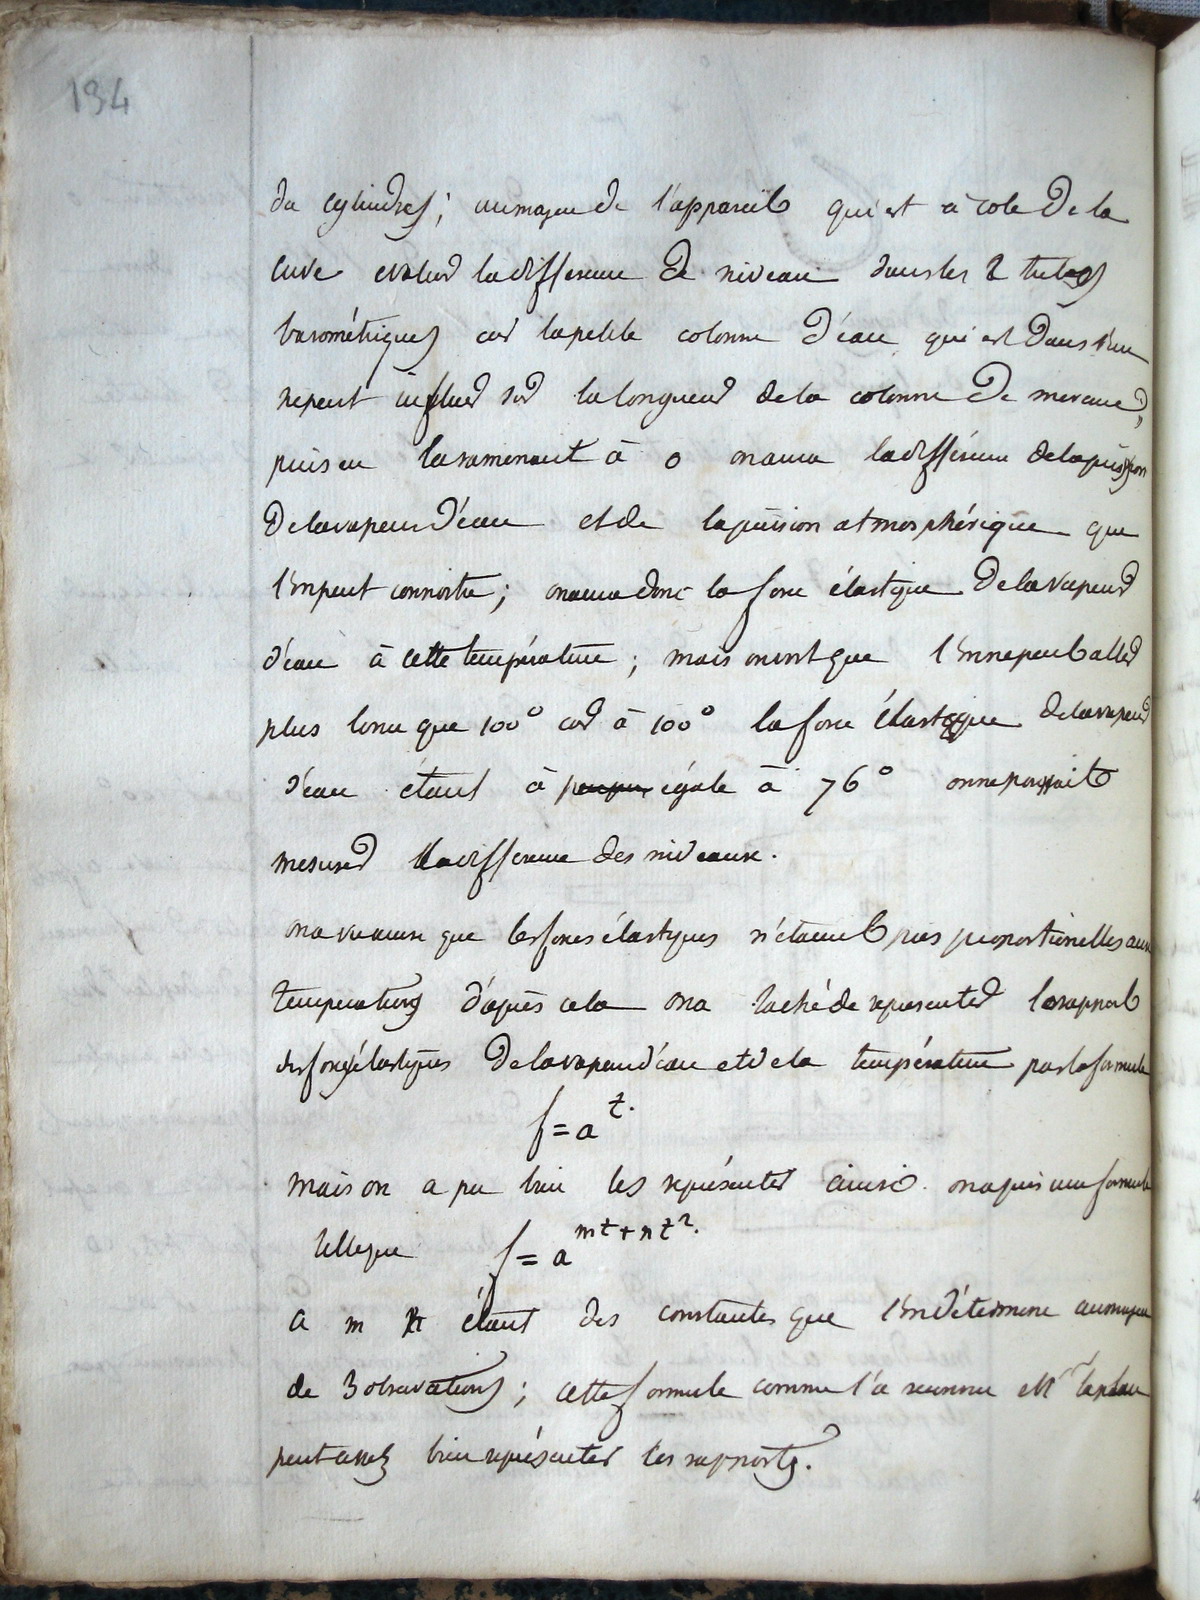 134
du cylindres; au moyen de l'appareil qui est à coté de la
cuve evaluer la difference de niveau dans les 2 tubes
barométriques car la petite colonne d'eau qui est dans l'un
ne peut influer sur la longueur de la colonne de mercure;
puis en la ramenant à 0 on aura la différence de la pression
de la vapeur d'eau et de la pression atmosphérique que
l'on peut connoitre; on aura donc la force élastique de la vapeur
d'eau à cette température; mais on voit que l'on ne peut aller
plus loin que 100° car à 100° la force élastique de la vapeur
d'eau étant à peu près égale à 76° on ne pourrait
mesurer la difference des niveaux.
on a vu que les forces élastiques n'étaient pas proportionelles aux
temperatures d'après cela on a taché de representer le rapport
des forces élastiques de la vapeur d'eau et de la température par la formule
f = a^t.
mais on a pu bien les représenter ainsi on a pris une formule
telle que f = a^{mt + nt²}.
a m n étant des constantes que l'on détermine au moyen
de 3 observations; cette formule comme l'a reconnu Mr laplace
peut assez bien représenter les rapports.